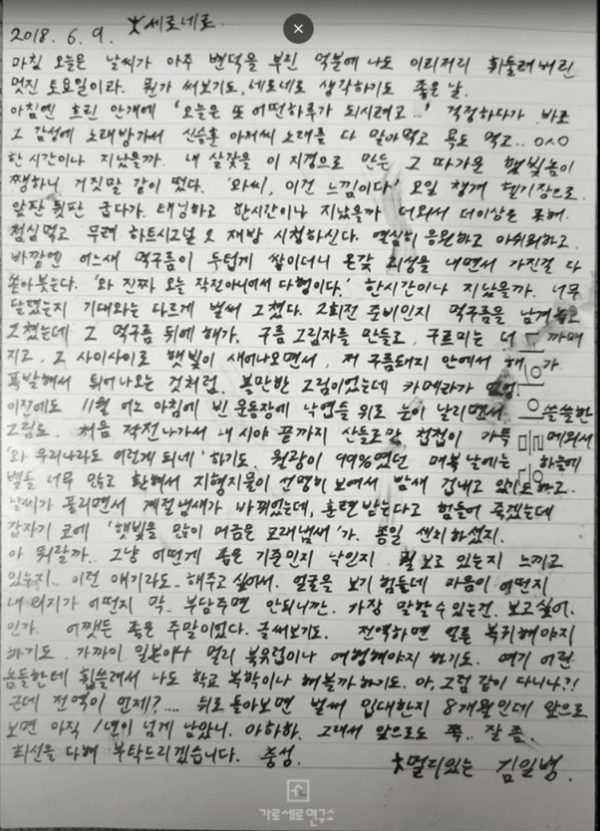 2018. 6. 9. ★세로네로.
마침 오늘은 날씨가 아주 변덕을 부린 덕분에 나도 이리저리 휘둘려버린
멋진 토요일이라. 뭔가 써보기도, 네로네로 생각하기도 좋은 날.
아침엔 흐린 안개에 '오늘은 또 어떤하루가 되시려고...' 걱정하다가 바로
그 감성에 노래방가서 신승훈 아저씨 노래를 다 말아먹고 욕도 먹고.. ㅇㅅㅇ
한 시간이나 지났을까. 내 살갗을 이 지경으로 만든 그 따가운 햇빛놈이
쨍하니 거짓말 같이 떴다. '와씨, 이건 느낌이다' 오일 챙겨 헬기장으로.
앞판 뒷판 굽다가. 태닝하고 한시간이나 지났을까 더워서 더이상은 못해.
점심먹고 무려 하트시그널 2 재방 시청하신다. 열심히 응원하고 아쉬워하고.
바깥엔 어느새 먹구름이 두텁게 쌓이더니 온갖 괴성을 내면서 가진걸 다
쏟아붓는다. '와 진짜 오늘 작전아니어서 다행이다.' 한시간이나 지났을까. 너무
달렸는지 기대와는 다르게 벌써 그쳤다. 2회전 준비인지 먹구름을 남겨놓고
그쳤는데 그 먹구름 뒤에 해가. 구름 그림자를 만들고, 구르미는 더 까매
지고, 그 사이사이로 햇빛이 새어나오면서, 저 구름돼지 안에서 해가
폭발해서 튀어나오는 것처럼. 볼만한 그림이었는데 카메라가
이전에도 11월 어느 아침에 빈 운동장에 낙엽들 위로 눈이 날리면서 쓸쓸한
그림도. 처음 작전나가서 내 시야 끝까지 산들로만 첩첩이 가득 메워서
'와 우리나라도 이렇게 되네' 하기도. 월광이 99%였던 매복 날에는 하늘에
별들 너무 많고 환해서 지형지물이 선명히 보여서 밤새 겁내고 있기도하고.
날씨가 풀리면서 계절냄새가 바뀌었는데, 훈련받는다고 힘들어 죽겠는데
갑자기 코에 '햇빛을 많이 머금은 모래냄새'가. 종일 센치하셨지.
아 뭐랄까.. 그냥 어떻게 좋은 기준인지 낙인지 뭘 보고 있는지 느끼고
있는지.. 이런 얘기라도 해주고 싶어서. 얼굴을 보기 힘들데 마음이 어떤지
내 의지가 어떤지 막. 부담주면 안되니깐. 가장 말할수 있는건. 보고싶어.
인가. 어쨋든 좋은 주말이었다. 글써보기도. 전역하면 얼른 복귀해야지
하기도. 가까이 일본이나 멀리 북유럽이나 여행해야지 하기도. 여기 어린
놈들한테 휩쓸려서 나도 학교 복학이나 해볼까하기도. 아, 그럼 같이 다니나?!
근데 전역이 언제?.... 뒤로 돌아보면 벌써 입대한지 8개월인데 앞으로
보면 아직 1년이 넘게 남았니. 아하하. 그래서 앞으로도 쭉.. 잘 좀.
최선을 다해 부탁드리겠습니다. 충성.
★멀리있는 김일병.
가로세로연구소